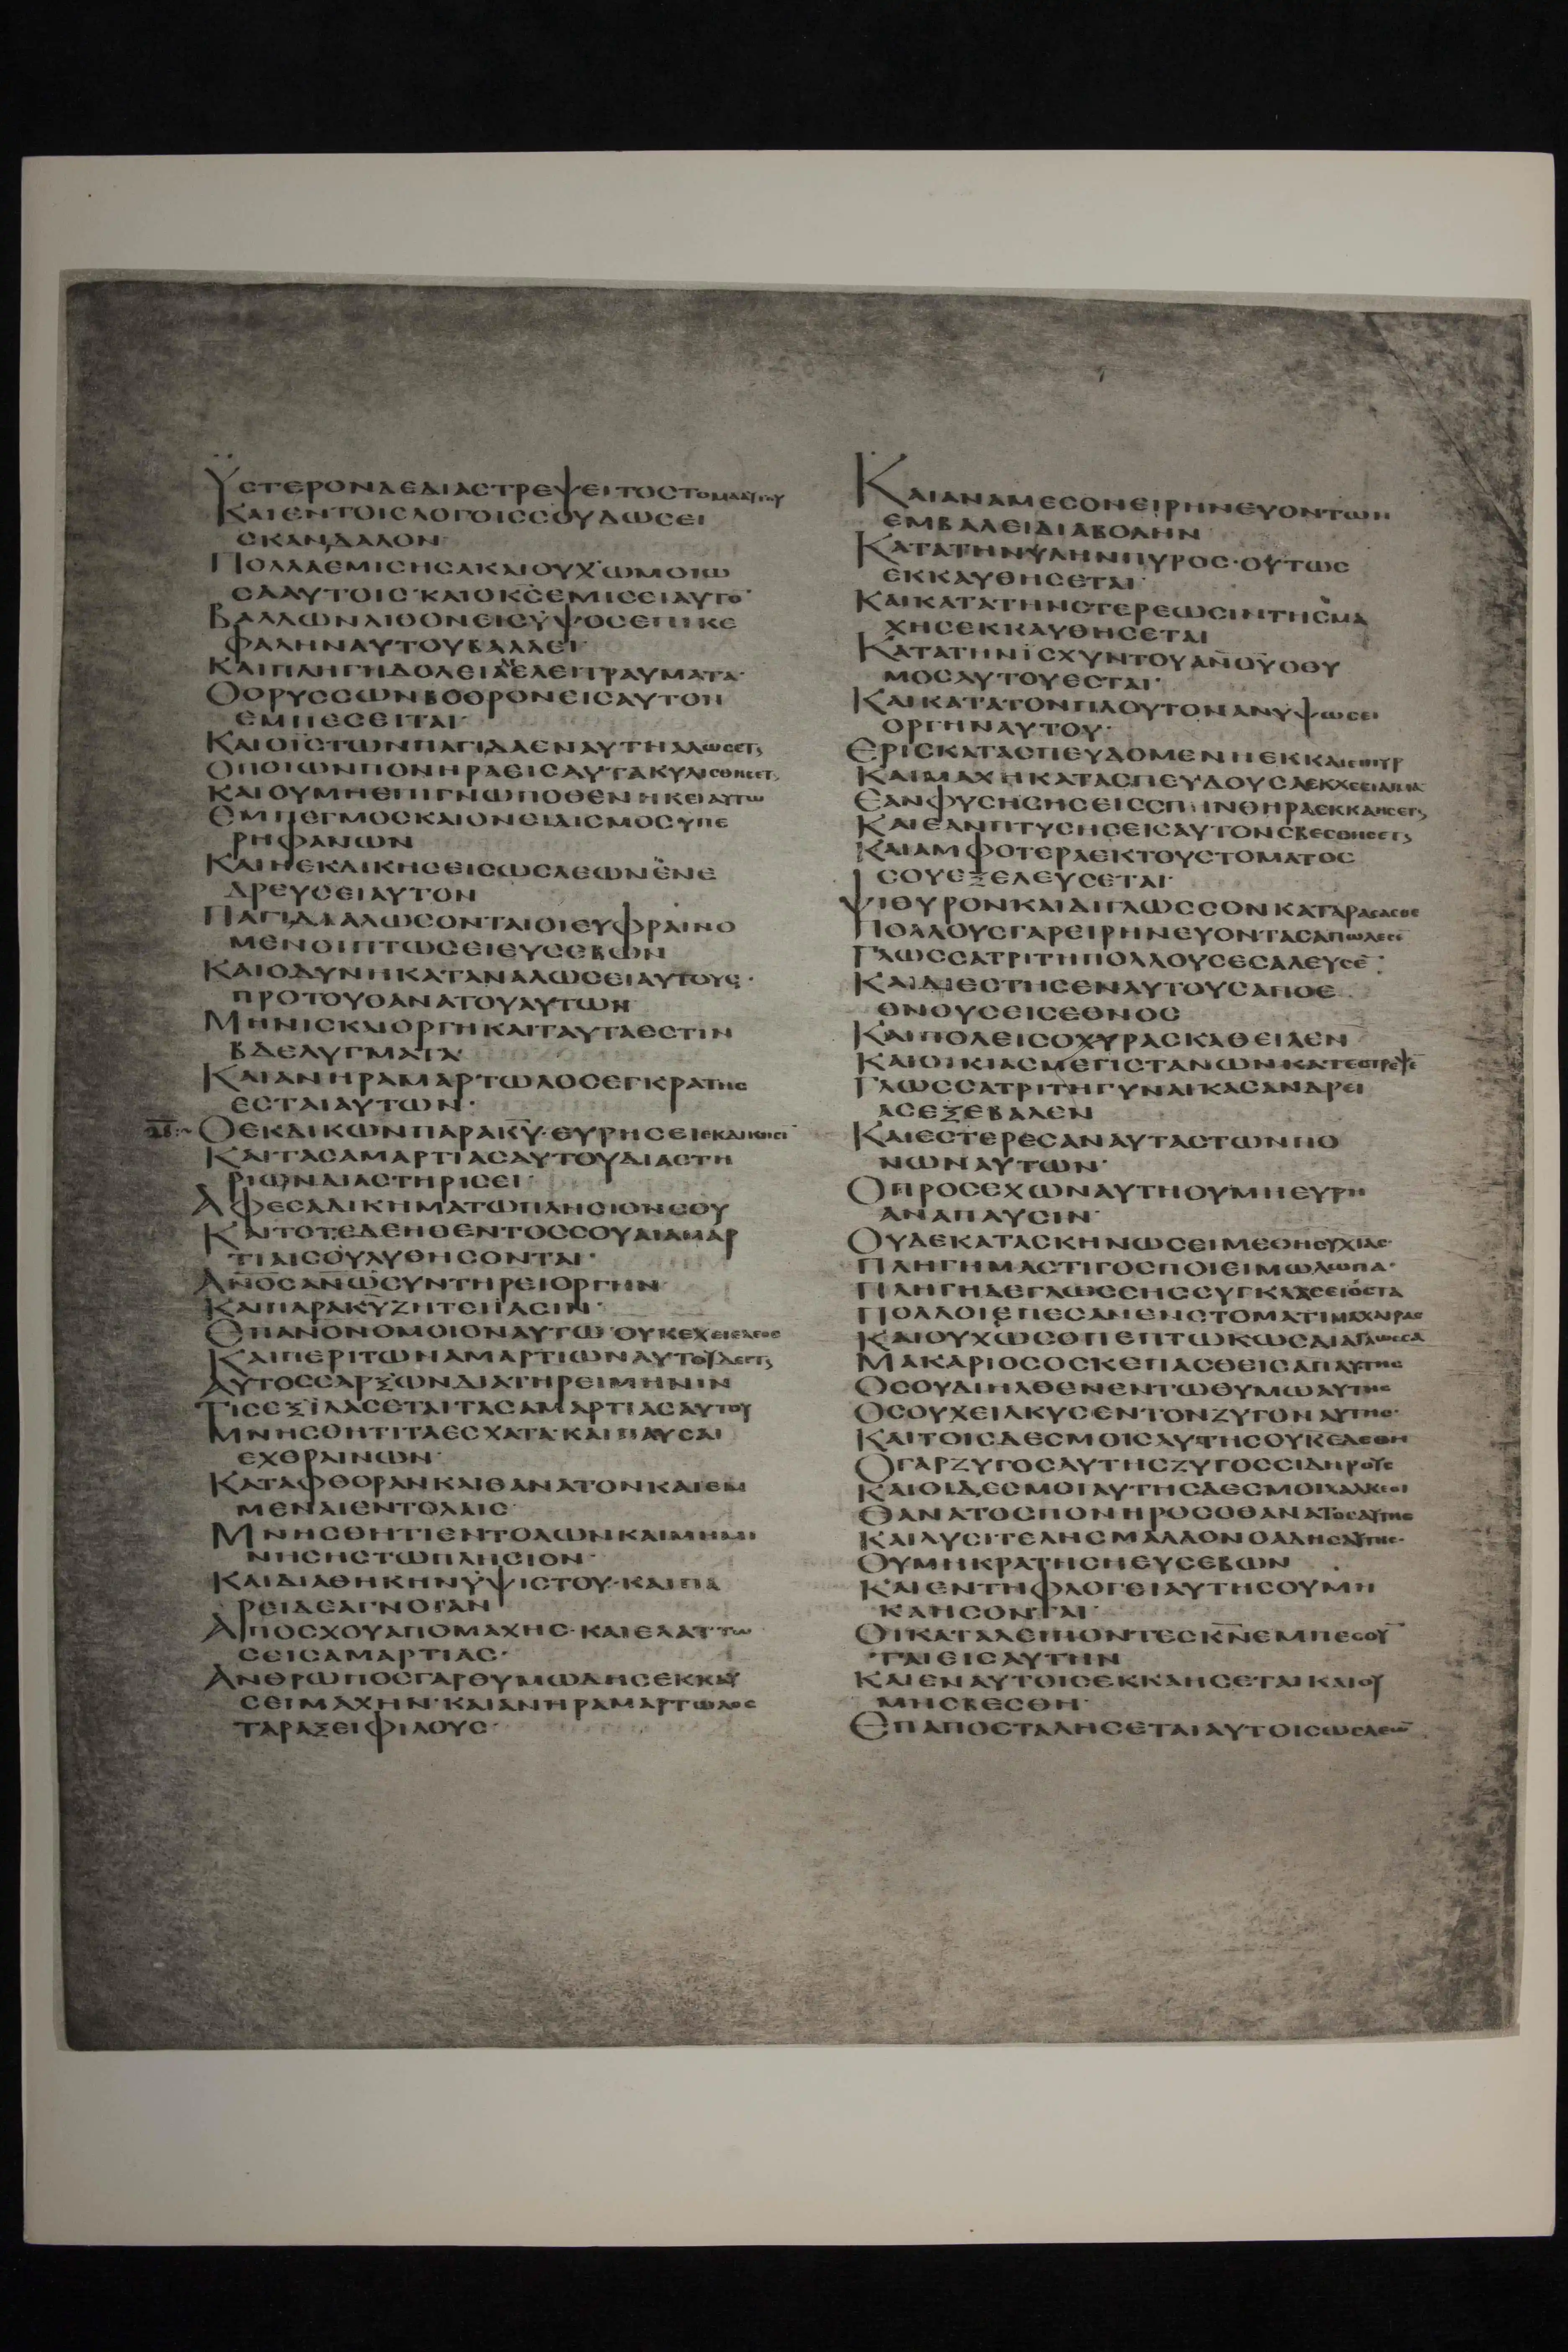 ΫϹΤΕΡΟΝΔΕΔΙΑϹΤΡΕΨΕΙΤΟϹΤΟΜΑΑΥΤΟΥ
ΚΑΙΕΝΤΟΙϹΛΟΓΟΙϹϹΟΥΔΩϹΕΙ
ϹΚΑΝΔΑΛΟΝ·
ΠΟΛΛΑΕΜΙϹΗϹΑΚΑΙΟΥΧΩΜΟΙΩ
ϹΑΑΥΤΟΙϹ·ΚΑΙΟΚ̅Ϲ̅ΕΜΙϹΕΙΑΥΤΟ
ΒΑΛΛΩΝΛΙΘΟΝΕΙϹΥΨΟϹΕΠΙΚΕ
ΦΑΛΗΝΑΥΤΟΥΒΑΛΛΕΙ·
ΚΑΙΠΛΗΓΗΔΟΛΕΙΑΔΙΕΛΕΙΤΡΑΥΜΑΤΑ·
ΟΟΡΥϹϹΩΝΒΟΘΡΟΝΕΙϹΑΥΤΟΝ
ΕΜΠΕϹΕΙΤΑΙ·
ΚΑΙΟΪϹΤΩΝΠΑΓΙΔΑΕΝΑΥΤΗΑΛΩϹΕΤ
ΟΠΟΙΩΝΠΟΝΗΡΑΕΙϹΑΥΤΑΚΥΛΙϹΘΗϹΕΤ
ΚΑΙΟΥΜΗΕΠΙΓΝΩΠΟΘΕΝΗΚΕΙΑΥΤΩ
ΕΜΠΕΓΜΟϹΚΑΙΟΝΕΙΔΙϹΜΟϹΥΠΕ
ΡΗΦΑΝΩΝ
ΚΑΙΗΕΚΔΙΚΗϹΕΙϹΩϹΛΕΩΝΕΝΕ
ΔΡΕΥϹΕΙΑΥΤΟΝ
ΠΑΓΙΔΙΑΛΩϹΟΝΤΑΙΟΙΕΥΦΡΑΙΝΟ
ΜΕΝΟΙΠΤΩϹΕΙΕΥϹΕΒΩΝ
ΚΑΙΟΔΥΝΗΚΑΤΑΝΑΛΩϹΕΙΑΥΤΟΥϹ·
ΠΡΟΤΟΥΘΑΝΑΤΟΥΑΥΤΩΝ
ΜΗΝΙϹΚΑΙΟΡΓΗΚΑΙΤΑΥΤΑΕϹΤΙΝ
ΒΔΕΛΥΓΜΑΤΑ
ΚΑΙΑΝΗΡΑΜΑΡΤΩΛΟϹΕΓΚΡΑΤΗϹ
ΕϹΤΑΙΑΥΤΩΝ·
ΟΕΚΔΙΚΩΝΠΑΡΑΚ̅Υ̅·ΕΥΡΗϹΕΙΕΚΔΙΚΗϹΙ̅
ΚΑΙΤΑϹΑΜΑΡΤΙΑϹΑΥΤΟΥΔΙΑϹΤΗ
ΡΙΩΝΔΙΑϹΤΗΡΙϹΕΙ·
ΑΦΕϹΑΔΙΚΗΜΑΤΩΠΛΗϹΙΟΝϹΟΥ
ΚΑΙΤΟΤΕΔΕΗΘΕΝΤΟϹϹΟΥΑΙΑΜΑΡ
ΤΙΑΙϹΟΥΛΥΘΗϹΟΝΤΑΙ·
Α̅Ν̅Ο̅Ϲ̅Α̅Ν̅Ω̅ϹΥΝΤΗΡΕΙΟΡΓΗΝ
ΚΑΙΠΑΡΑΚ̅Υ̅ΖΗΤΕΙΙΑϹΙΝ·
ΕΠΑ̅Ν̅Ο̅Ν̅ΟΜΟΙΟΝΑΥΤΩΟΥΚΕΧΕΙΕΛΕΟϹ
ΚΑΙΠΕΡΙΤΩΝΑΜΑΡΤΙΩΝΑΥΤΟΥΔΕΙΤ
ΑΥΤΟϹϹΑΡΞΩΝΔΙΑΤΗΡΕΙΜΗΝΙΝ
ΤΙϹΕΞΙΛΑϹΕΤΑΙΤΑϹΑΜΑΡΤΙΑϹΑΥΤΟΥ
ΜΝΗϹΘΗΤΙΤΑΕϹΧΑΤΑ·ΚΑΙΠΑΥϹΑΙ
ΕΧΘΡΑΙΝΩΝ·
ΚΑΤΑΦΘΟΡΑΝΚΑΙΘΑΝΑΤΟΝΚΑΙΕΜ
ΜΕΝΑΙΕΝΤΟΛΑΙϹ·
ΜΝΗϹΘΗΤΙΕΝΤΟΛΩΝΚΑΙΜΗΜΙ
ΝΗϹΗϹΤΩΠΛΗϹΙΟΝ·
ΚΑΙΔΙΑΘΗΚΗΝΫΨΙϹΤΟΥ·ΚΑΙΠΑ
ΡΕΙΔΕΑΓΝΟΙΑΝ
ΑΠΟϹΧΟΥΑΠΟΜΑΧΗϹ·ΚΑΙΕΛΑΤΤΩ
ϹΕΙϹΑΜΑΡΤΙΑϹ·
ΑΝΘΡΩΠΟϹΓΑΡΘΥΜΩΔΗϹΕΚΚΑΥ
ϹΕΙΜΑΧΗΝ·ΚΑΙΑΝΗΡΑΜΑΡΤΩΛΟϹ
ΤΑΡΑΞΕΙΦΙΛΟΥϹ·
ΚΑΙΑΝΑΜΕϹΟΝΕΙΡΗΝΕΥΟΝΤΩΝ
ΕΜΒΑΛΕΙΔΙΑΒΟΛΗΝ
ΚΑΤΑΤΗΝΥΛΗΝΠΥΡΟϹ·ΟΥΤΩϹ
ΕΚΚΑΥΘΗϹΕΤΑΙ·
ΚΑΙΚΑΤΑΤΗΝϹΤΕΡΕΩϹΙΝΤΗϹΜΑ
ΧΗϹΕΚΚΑΥΘΗϹΕΤΑΙ
ΚΑΤΑΤΗΝΙϹΧΥΝΤΟΥΑ̅Ν̅Ο̅Υ̅ΟΘΥ
ΜΟϹΑΥΤΟΥΕϹΤΑΙ·
ΚΑΙΚΑΤΑΤΟΝΠΛΟΥΤΟΝΑΝΥΨΩϹΕΙ
ΟΡΓΗΝΑΥΤΟΥ·
ΕΡΙϹΚΑΤΑϹΠΕΥΔΟΜΕΝΗΕΚΚΑΙΕΙΠΥΡ
ΚΑΙΜΑΧΗΚΑΤΑϹΠΕΥΔΟΥϹΑΕΚΧΕΕΙΑΙΜΑ
ΕΑΝΦΥϹΗϹΗϹΕΙϹϹΠΙΝΘΗΡΑΕΚΚΑΗϹΕΤ
ΚΑΙΕΑΝΠΤΥϹΗϹΕΙϹΑΥΤΟΝϹΒΕϹΘΗϹΕΤ
ΚΑΙΑΜΦΟΤΕΡΑΕΚΤΟΥϹΤΟΜΑΤΟϹ
ϹΟΥΕΞΕΛΕΥϹΕΤΑΙ·
ΨΙΘΥΡΟΝΚΑΙΔΙΓΛΩϹϹΟΝΚΑΤΑΡΑϹΑϹΘΕ
ΠΟΛΛΟΥϹΓΑΡΕΙΡΗΝΕΥΟΝΤΑϹΑΠΩΛΕϹΕ̅
ΓΛΩϹϹΑΤΡΙΤΗΠΟΛΛΟΥϹΕϹΑΛΕΥϹΕ̅
ΚΑΙΔΙΕϹΤΗϹΕΝΑΥΤΟΥϹΑΠΟΕ
ΘΝΟΥϹΕΙϹΕΘΝΟϹ
ΚΑΙΠΟΛΕΙϹΟΧΥΡΑϹΚΑΘΕΙΛΕΝ
ΚΑΙΟΙΚΙΑϹΜΕΓΙϹΤΑΝΩΝΚΑΤΕϹΤΡΕΨΕ̅
ΓΛΩϹϹΑΤΡΙΤΗΓΥΝΑΙΚΑϹΑΝΔΡΕΙ
ΑϹΕΞΕΒΑΛΕΝ
ΚΑΙΕϹΤΕΡΕϹΑΝΑΥΤΑϹΤΩΝΠΟ
ΝΩΝΑΥΤΩΝ·
ΟΠΡΟϹΕΧΩΝΑΥΤΗΟΥΜΗΕΥΡΗ
ΑΝΑΠΑΥϹΙΝ·
ΟΥΔΕΚΑΤΑϹΚΗΝΩϹΕΙΜΕΘΗϹΥΧΙΑϹ·
ΠΛΗΓΗΜΑϹΤΙΓΟϹΠΟΙΕΙΜΩΛΩΠΑ·
ΠΛΗΓΗΔΕΓΛΩϹϹΗϹϹΥΓΚΛΑϹΕΙΟϹΤΑ
ΠΟΛΛΟΙΕΠΕϹΑΝΕΝϹΤΟΜΑΤΙΜΑΧΑΙΡΑϹ
ΚΑΙΟΥΧΩϹΟΠΕΠΤΩΚΩϹΔΙΑΓΛΩϹϹΑ
ΜΑΚΑΡΙΟϹΟϹΚΕΠΑϹΘΕΙϹΑΠΑΥΤΗϹ
ΟϹΟΥΔΙΗΛΘΕΝΕΝΤΩΘΥΜΩΑΥΤΗϹ
ΟϹΟΥΧΕΙΛΚΥϹΕΝΤΟΝΖΥΓΟΝΑΥΤΗϹ·
ΚΑΙΤΟΙϹΔΕϹΜΟΙϹΑΥΤΗϹΟΥΚΕΔΕΘΗ
ΟΓΑΡΖΥΓΟϹΑΥΤΗϹΖΥΓΟϹϹΙΔΗΡΟΥϹ
ΚΑΙΟΙΔΕϹΜΟΙΑΥΤΗϹΔΕϹΜΟΙΧΑΛΚΕΟΙ
ΘΑΝΑΤΟϹΠΟΝΗΡΟϹΟΘΑΝΑΤΟϹΑΥΤΗϹ
ΚΑΙΛΥϹΙΤΕΛΗϹΜΑΛΛΟΝΟΑΔΗϹΑΥΤΗϹ·
ΟΥΜΗΚΡΑΤΗϹΗΕΥϹΕΒΩΝ
ΚΑΙΕΝΤΗΦΛΟΓΕΙΑΥΤΗϹΟΥΜΗ
ΚΑΗϹΟΝΤΑΙ·
ΟΙΚΑΤΑΛΕΙΠΟΝΤΕϹΚ̅Ν̅ΕΜΠΕϹΟΥ̅
ΤΑΙΕΙϹΑΥΤΗΝ
ΚΑΙΕΝΑΥΤΟΙϹΕΚΚΑΗϹΕΤΑΙΚΑΙΟΥ
ΜΗϹΒΕϹΘΗ·
ΕΠΑΠΟϹΤΑΛΗϹΕΤΑΙΑΥΤΟΙϹΩϹΛΕΩ̅